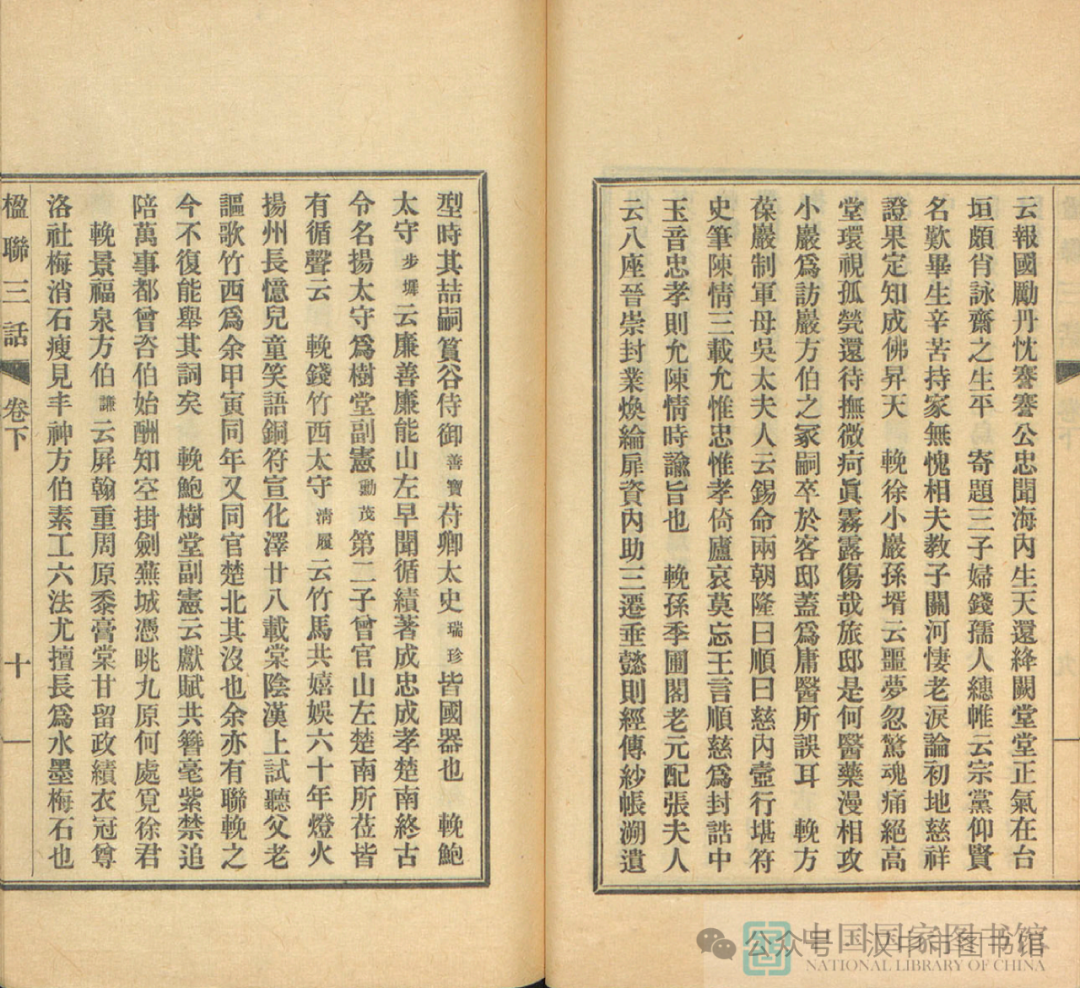 云報國勵丹忱謇謇公忠聞海內生天還絳闕堂堂正氣在台
垣頗肖詠齋之生平　寄題三子婦錢孺人繐帷云宗黨仰賢
名歎畢生辛苦持家無愧相夫教子關河悽老淚論初地慈祥
證果定知成佛昇天　輓徐小巖孫壻云噩夢忽驚魂痛絕高
堂環視孤煢還待撫微疴眞霧露傷哉旅邸是何醫藥漫相攻
小巖爲訪巖方伯之冢嗣卒於客邸蓋爲庸醫所誤耳　輓方
葆巖制軍母吳太夫人云錫命兩朝隆曰順曰慈內壼行堪符
史筆陳情三載允惟忠惟孝倚廬哀莫忘王言順慈爲封誥中
玉音忠孝則允陳情時諭旨也　輓孫季圃閣老元配張夫人
云八座晉崇封業煥綸扉資內助三遷垂懿則經傳紗帳溯遺
型時其喆嗣篔谷侍御善寶苻卿太史瑞珍皆國器也　輓鮑
太守步墀云廉善廉能山左早聞循績著成忠成孝楚南終古
令名揚太守爲樹堂副憲勳茂第二子曾官山左楚南所莅皆
有循聲云　輓錢竹西太守清履云竹馬共嬉娛六十年燈火
揚州長憶兒童笑語銅符宣化澤廿八載棠陰漢上試聽父老
謳歌竹西爲余甲寅同年又同官楚北其沒也余亦有聯輓之
今不復能舉其詞矣　輓鮑樹堂副憲云獻賦共簪毫紫禁追
陪萬事都曾咨伯始酬知空掛劍蕪城憑眺九原何處覓徐君
輓景福泉方伯謙云屏翰重周原黍膏棠甘留政績衣冠尊
洛社梅消石瘦見丰神方伯素工六法尤擅長爲水墨梅石也
楹聯三話　卷下　十一
公众号·汉中市图书馆
中国国家图书馆
NATIONAL LIBRARY OF CHINA